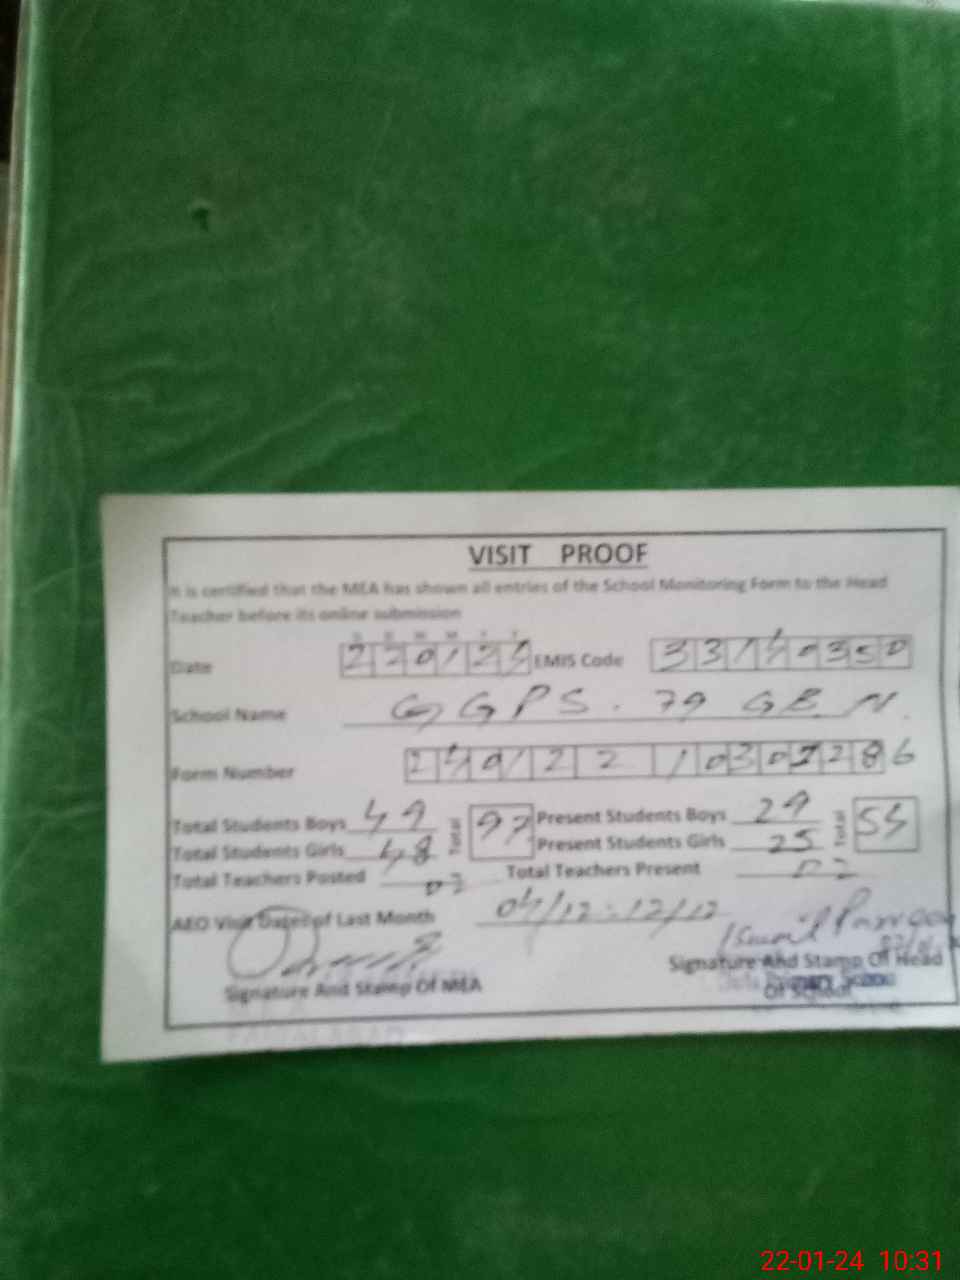 VISIT PROOF
It is certified that the MEA has shown all entries of the School Monitoring Form to the Head
Teacher before its online submission
D D M M Y Y
Date 220124 EMIS Code 33140350
School Name GGPS. 79 GB
Form Number
Total Students Boys 49 Total 97 Present Students Boys 29 Total 54
Total Students Girls 48 Present Students Girls 25
Total Teachers Posted 02 Total Teachers Present 02
AEO Visit Dates of Last Month 04/12 : 12/12
Signature And Stamp Of MEA
Signature And Stamp Of Head
Of School
22-01-24 10:31